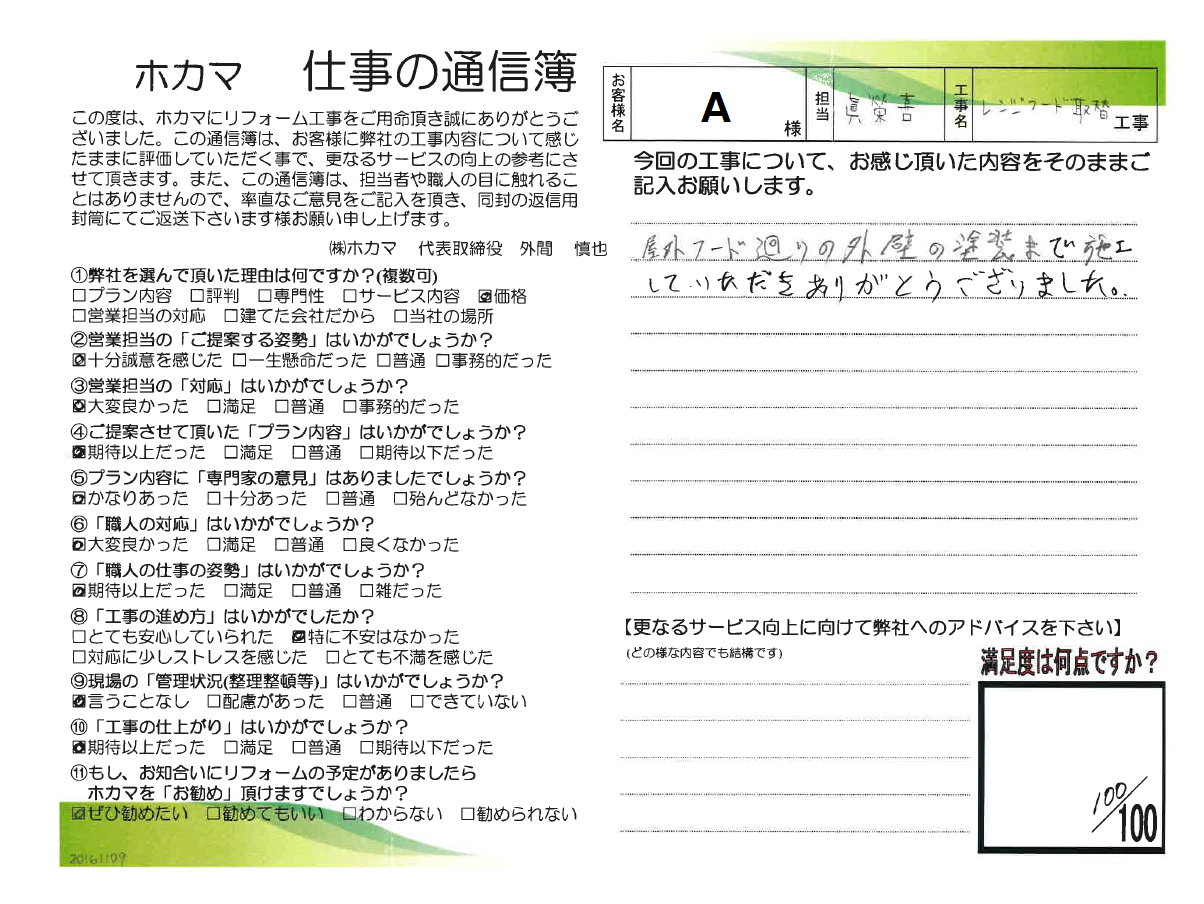 ホカマ 仕事の通信簿
この度は、ホカマにリフォーム工事をご用命頂き誠にありがとうご
ざいました。この通信簿は、お客様に弊社の工事内容について感じ
たままに評価していただく事で、更なるサービスの向上の参考にさ
せて頂きます。また、この通信簿は、担当者や職人の目に触れるこ
とはありませんので、率直なご意見をご記入を頂き、同封の返信用
封筒にてご返送下さいます様お願い申し上げます。
㈱ホカマ 代表取締役 外間 慎也
①弊社を選んで頂いた理由は何ですか?(複数可)
□プラン内容 □評判 □専門性 □サービス内容 ☑価格
□営業担当の対応 □建てた会社だから □当社の場所
②営業担当の「ご提案する姿勢」はいかがでしょうか?
☑十分誠意を感じた □一生懸命だった □普通 □事務的だった
③営業担当の「対応」はいかがでしょうか?
☑大変良かった □満足 □普通 □事務的だった
④ご提案させて頂いた「プラン内容」はいかがでしょうか?
☑期待以上だった □満足 □普通 □期待以下だった
⑤プラン内容に「専門家の意見」はありましたでしょうか?
☑かなりあった □十分あった □普通 □殆んどなかった
⑥「職人の対応」はいかがでしょうか?
☑大変良かった □満足 □普通 □良くなかった
⑦「職人の仕事の姿勢」はいかがでしょうか?
☑期待以上だった □満足 □普通 □雑だった
⑧「工事の進め方」はいかがでしたか?
□とても安心していられた ☑特に不安はなかった
□対応に少しストレスを感じた □とても不満を感じた
⑨現場の「管理状況(整理整頓等)」はいかがでしょうか?
☑言うことなし □配慮があった □普通 □できていない
⑩「工事の仕上がり」はいかがでしょうか?
☑期待以上だった □満足 □普通 □期待以下だった
⑪もし、お知合いにリフォームの予定がありましたら
ホカマを「お勧め」頂けますでしょうか?
☑ぜひ勧めたい □勧めてもいい □わからない □勧められない
20161109
お客様名 A 様 担当 眞榮喜 工事名 レンジフード取替 工事
今回の工事について、お感じ頂いた内容をそのままご
記入お願いします。
屋外フード廻りの外壁の塗装まで施工
していただきありがとうございました。
【更なるサービス向上に向けて弊社へのアドバイスを下さい】
(どの様な内容でも結構です)
満足度は何点ですか?
100/100